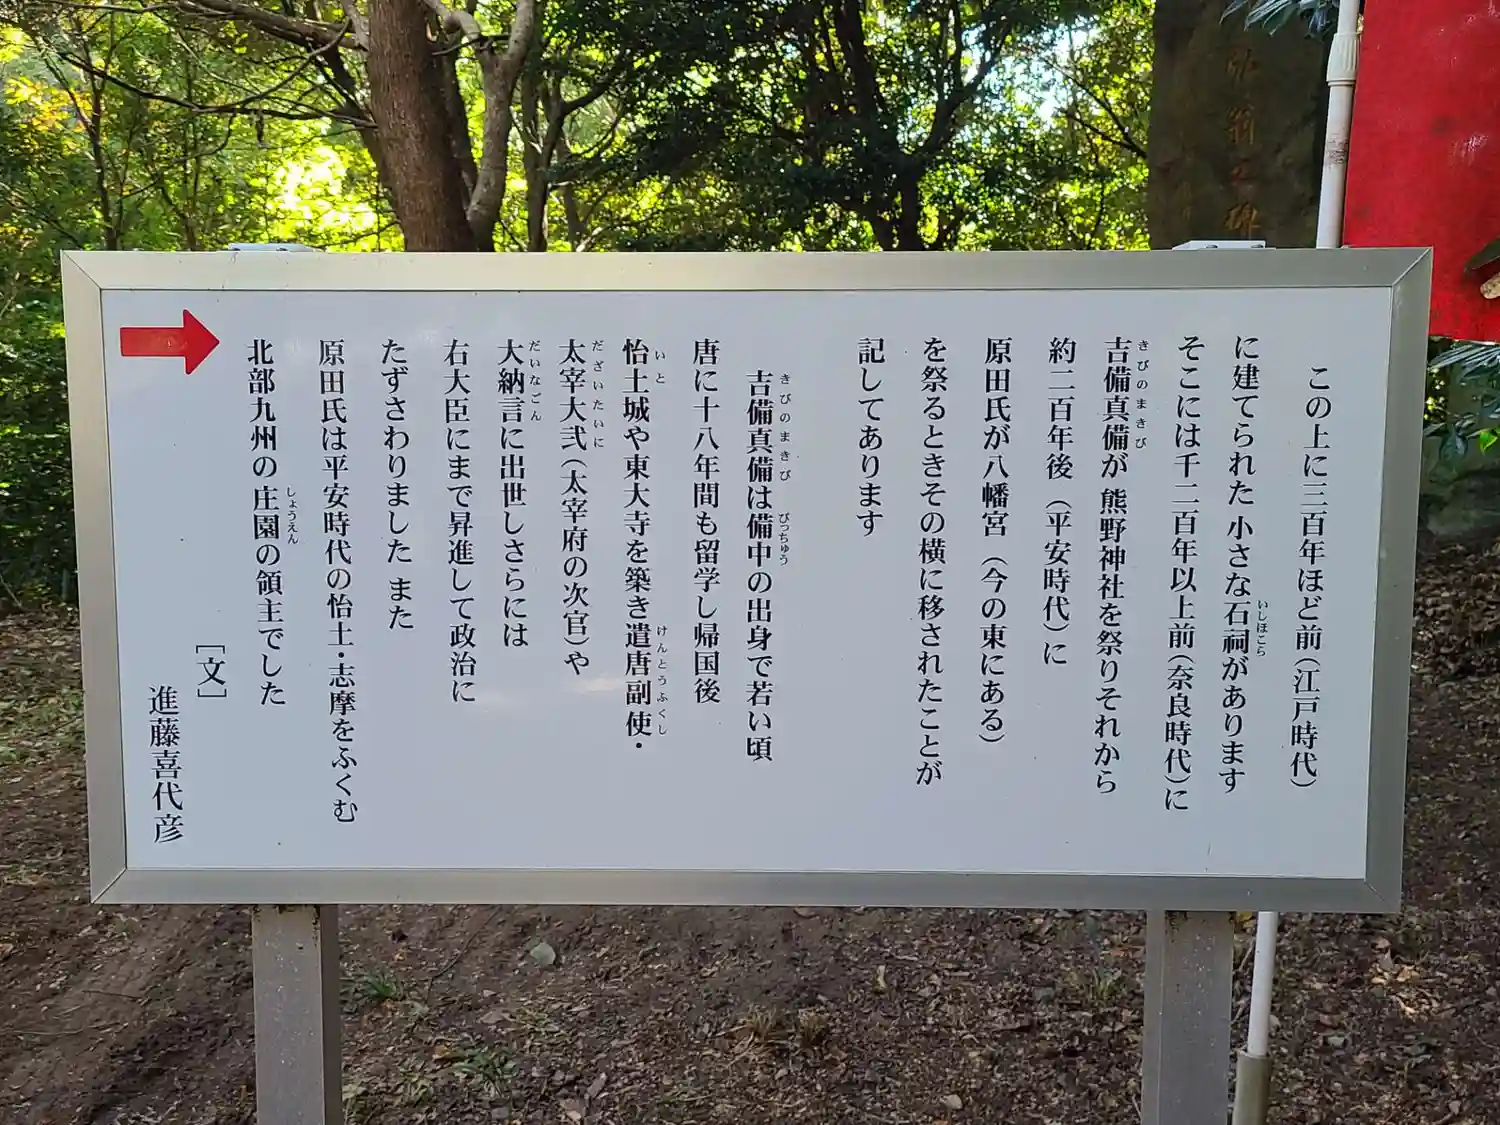 この上に三百年ほど前（江戸時代）
に建てられた 小さな石祠があります
いしほこら
そこには千二百年以上前（奈良時代）に
吉備真備が 熊野神社を祭りそれから
きびのまきび
約二百年後（平安時代）に
原田氏が八幡宮（今の東にある）
を祭るときその横に移されたことが
記してあります
吉備真備は備中の出身で若い頃
きびのまきび びっちゅう
唐に十八年間も留学し帰国後
怡土城や東大寺を築き遣唐副使・
いと けんとうふくし
太宰大弐（太宰府の次官）や
だざいたいに
大納言に出世しさらには
だいなごん
右大臣にまで昇進して政治に
たずさわりました また
原田氏は平安時代の怡土・志摩をふくむ
北部九州の庄園の領主でした
しょうえん
［文］
進藤喜代彦
翁之碑